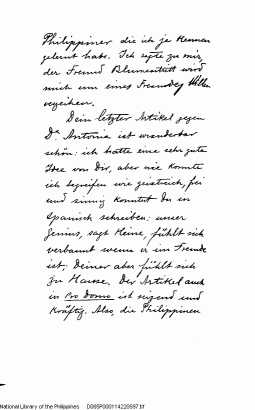 Philippiner die ich je kennen
gelernt habe. Ich sagte zu mir,
der Freund Blumentritt wird
mich um eines Freundes Willen
verzeihen.
Dein letzter Artikel gegen
Dr Antonio ist wunderbar
schön; ich hatte eine sehr gute
Idee von Dir, aber nie konnte
ich begreifen wie geistreich, frei
und sinnig konntest du in
Spanisch schreiben: unser
Genius, sagt Heine, fühlt sich
verbannt wenn er in Fremde
ist; Deiner aber fühlt sich
zu Hause. Der Artikel auch
in Pro Domo ist reizend und
kräftig. Also, die Philippinen
National Library of the Philippines